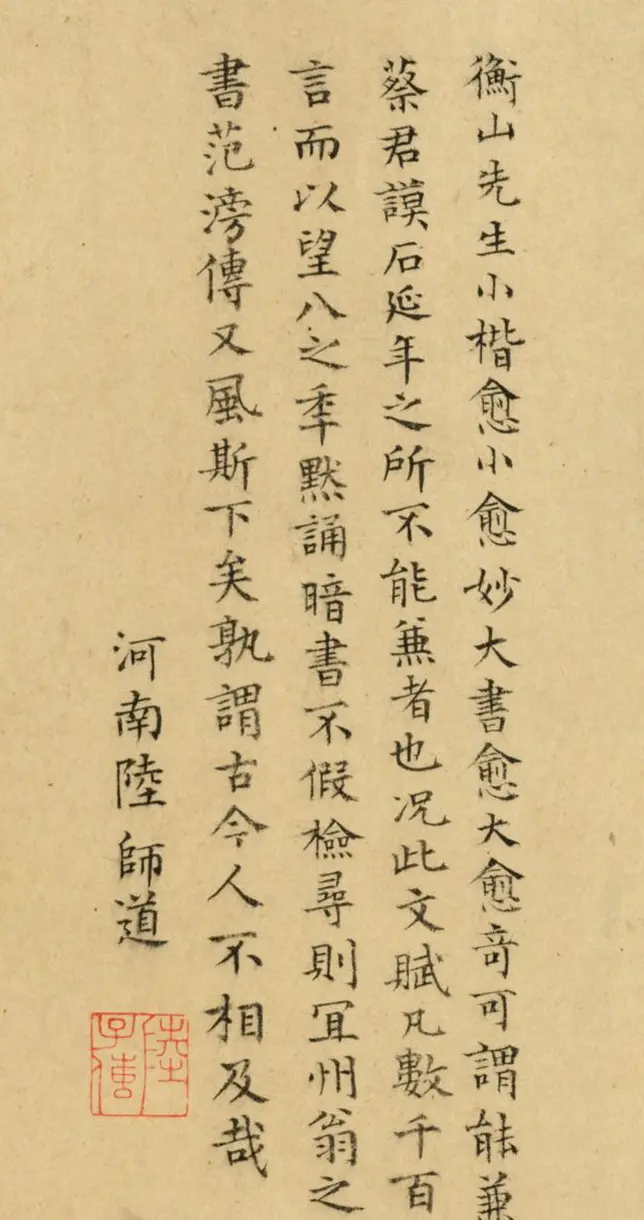 衡山先生小楷愈小愈妙大書愈大愈奇可謂能兼
蔡君謨石延年之所不能兼者也况此文賦凡數千百
言而以望八之季默誦暗書不假檢尋則冝州翁之
書范滂傳又風斯下矣孰謂古今人不相及哉
河南陸師道
陸子傳